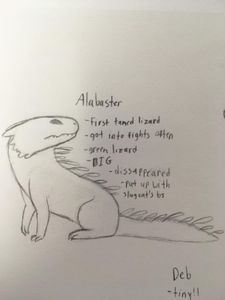 Alabaster
-First tamed lizard
-got into fights often
-green lizard
-BIG
-dissappeared
-put up with
slugcat's bs
Deb
-tiny!!